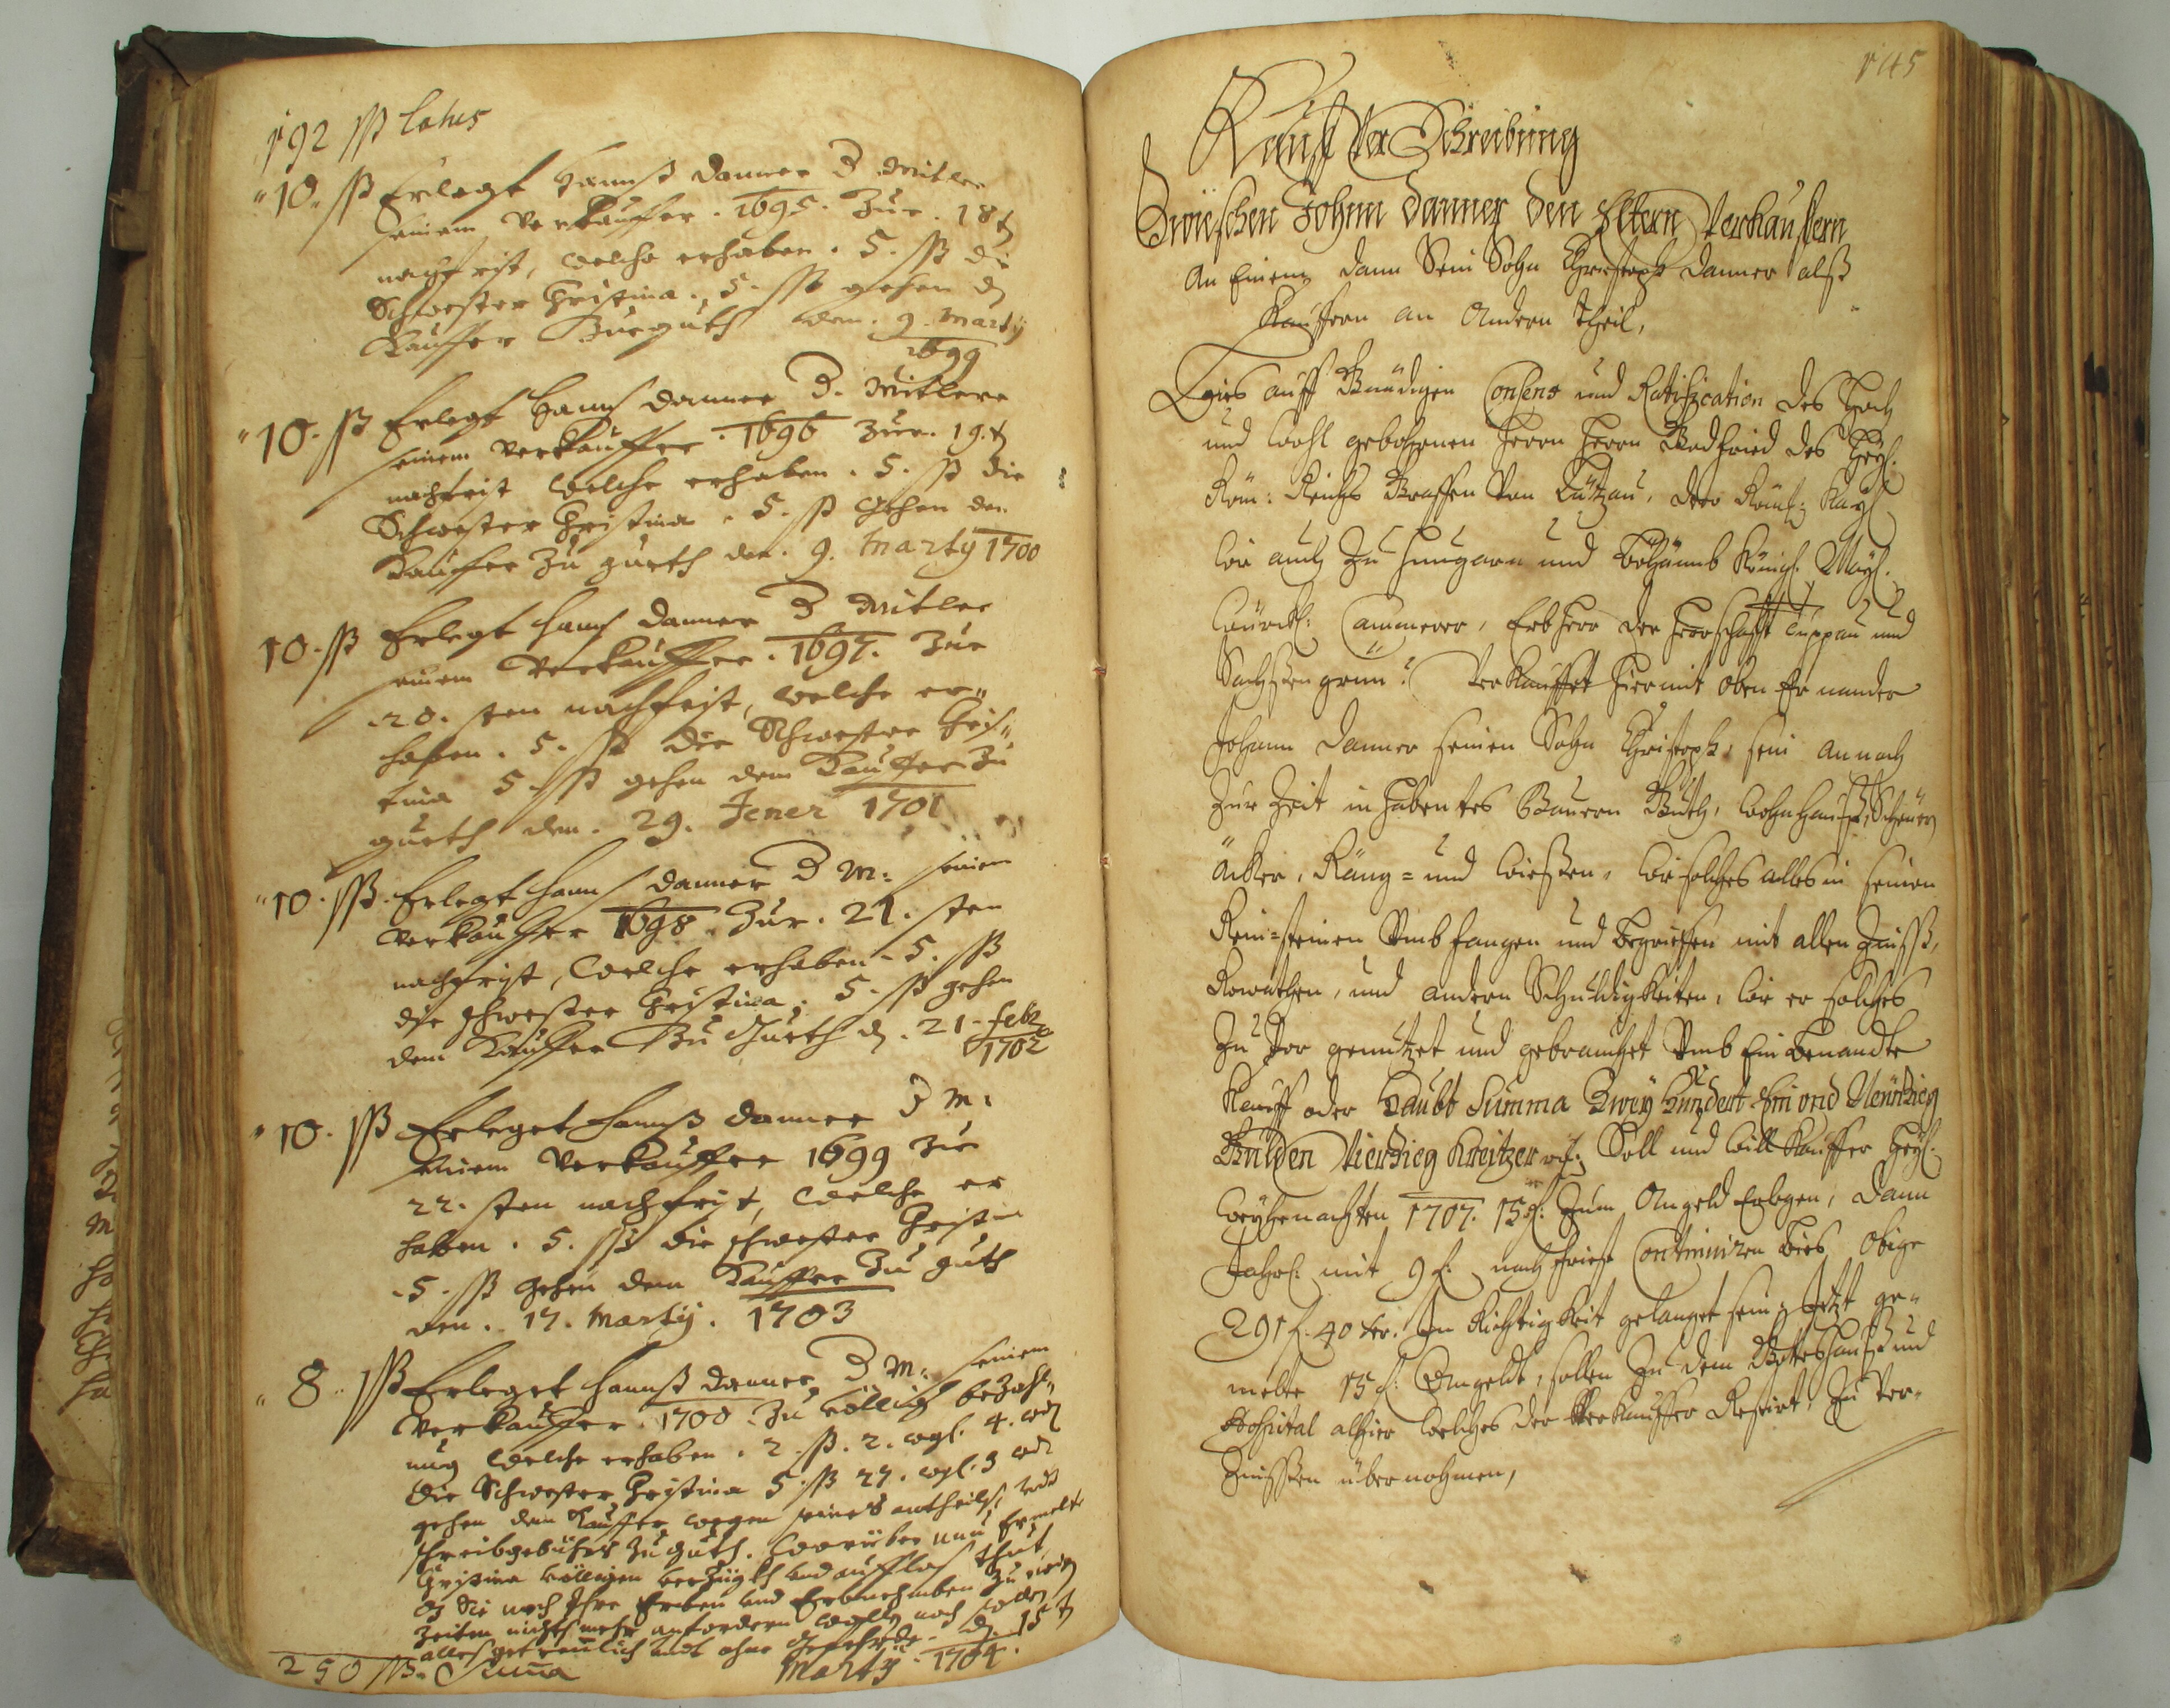 192 ßß Latus
10. ßß Erlegt Hannß Danner D Mitler
seinem Verkauffer. 1695. Zur. 18t
nachfrist, welche erhaben. 5. ßß die
Schwester Christina. 5. ßß gehen d
Kauffer Zue guth den. 9. Marty
1699
10. ß Erlegt Hanß Danner D. Mitlere
seinem Verkauffer. 1696 Zur. 19.t
nachfrist welche erhaben. 5. ß die
Schwester Christina. 5. ß gehen den
Kauffer Zu gueth den. 9. Marty 1700
10. ß Erlegt Hanß Danner D Mitler
seinem Verkauffer. 1697. Zur
20. sten nachfrist, welche er„
haben. 5. ß die Schwester Chris„
tina 5. ß gehen dem Kauffer Zu
gueth den. 29. Jener 1701
10. ßß. Erlegt Hanß Danner D M: seinem
Verkauffer 1698. Zur. 21. sten
nachfrist, welche erhaben. 5. ßß
die Schwester Christina. 5. ß gehen
dem Kauffer Zu Gueth d. 21. Feb
1702
10. ßß Erleget Hannß Danner D M:
seinem Verkauffer 1699 Zur
22. sten nachfrist, welche er
haben. 5. ßß die Schwester Christin
5. ßß gehen dem Kauffer Zu guth
den. 17. Marty. 1703
8. ßß Erleget Hannß Danner D M: seinem
Verkauffer. 1700. Zu völlig bezahl„
ung welche erhaben. 2. ß. 2. wgl. 4. wd
die Schwester Christina 5. ß 27. wgl. 3 wd
gehen dem Kauffer wegen seines antheilß, undt
schreibgebühr Zu guth. Worüber nun Ermelte
Christina völligen verZügth und aufflaß thut
d Sie noch Ihre Erben und Erbnehmben Zu ewig
Zeiten nichts mehr anfordern wollen noch sollen
alles getreulich undt ohne Geferhrde d. 15t
250 ßß. Suma Marty. 1704.
145
Kauff Ver Schreibung
Zwieschen Johnn Danner den Eltern Verkauffern
An Einem, dann Sein Sohn Christoph Danner alß
Kauffern an Andern Theil,
Bies auff Gnädigen Consens und Ratification des Hoch
und Wohl gebohrnen Herrn Herrn Godfried des Heyl.
Röm: Reichs Graffen Von Lützau, der Röm: Kayl
wie auch Zu Hungarn und Böhaimb Königl. Mayl.
Würckl: Cammerer, Erb Herr der Herrschafft Tuppau und
Sachssengrün: Verkauffet hiermit Oben Er nander
Johann Danner seinen Sohn Christoph, sein annoch
Zur Zeit in habentes Bauern Guth, Wohnhauß, Scheuer
Äcker, Räng= und Wiessen, wie solches alles in seinen
Rein=steinen Umbfangen und begriefen mit allen Zinsß,
Rowathen, und andern Schuldigkeiten, wie er solches
Zu Vor genützet und gebrauchet Umb Ein benandte
Kauff oder Haubt Summa Zwey Hundert Ein vnd Neüntzieg
Gulden Viertzieg Kreitzer Soll und will Kauffer Heyl.
Weyhenachten 1707. 15 f: Zum Angeld Erlegen, dann
Jahrl: mit 9 f: nachfriest Continuiren bies obige
291 f. 40 xr. In Richtigkeit gelanget sein; Jetzt ge„
melte 15 f: Angeldt, sollen Zu dem Gotteshauß und
Hospital alhier welches der Verkauffer Restirt, Zu Ver„
Zinssen übernohmen,